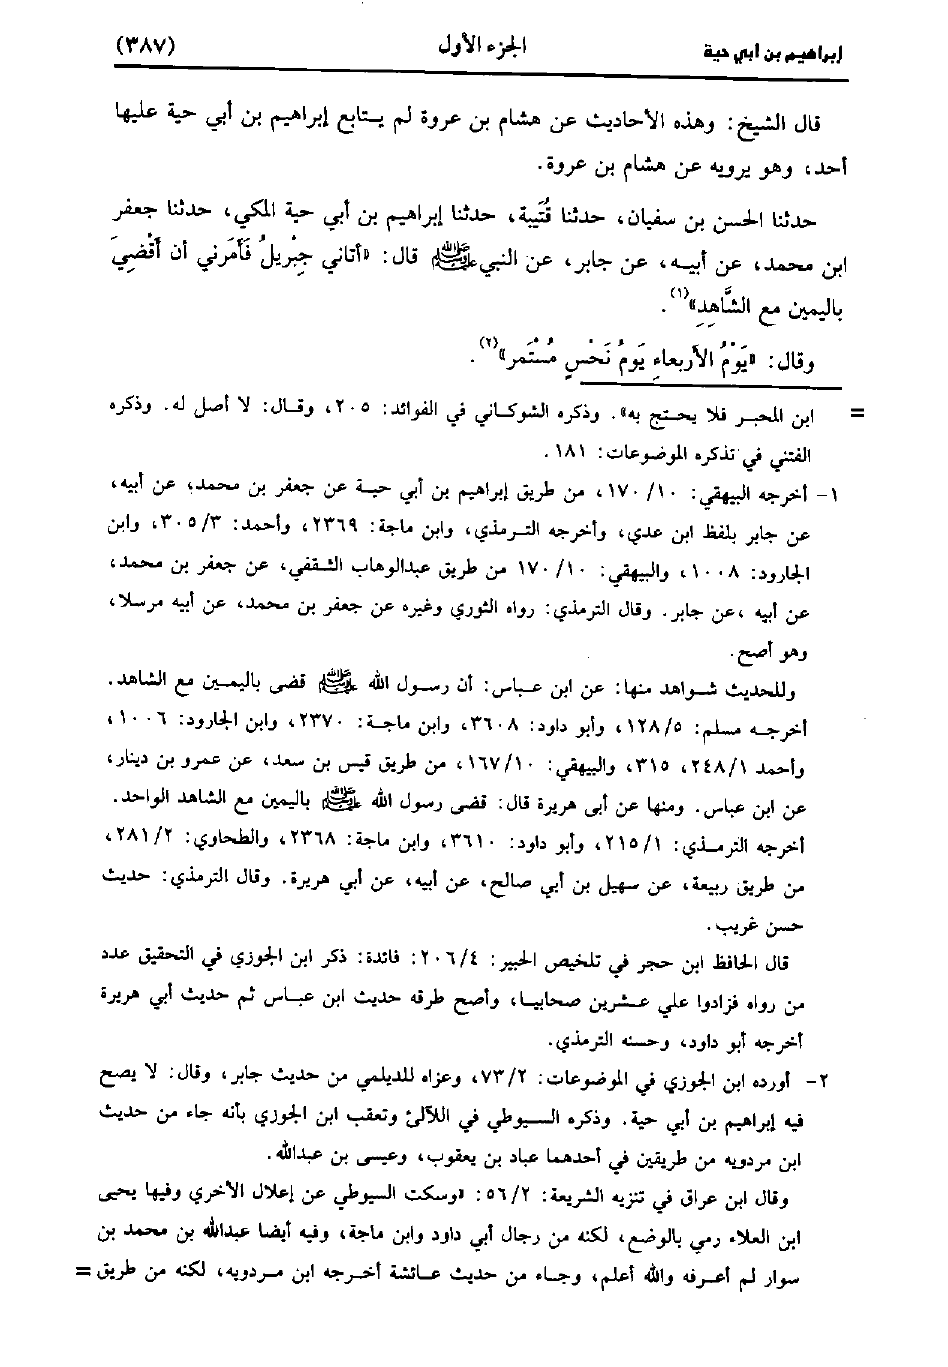 إبراهيم بن أبي حية الجزء الأول (٣٨٧)
قال الشيخ: وهذه الأحاديث عن هشام بن عروة لم يتابع إبراهيم بن أبي حية عليها
أحد، وهو يرويه عن هشام بن عروة.
حدثنا الحسن بن سفيان، حدثنا قُتَيبة، حدثنا إبراهيم بن أبي حية المكي، حدثنا جعفر
ابن محمد، عن أبيه، عن جابر، عن النبي ﷺ قال: «أتاني جِبْريلُ فَأمَرني أن أقْضِيَ
باليمين مع الشَّاهِدِ»(١).
وقال: «يَوْمُ الأربعاءِ يَومُ نَحْسٍ مُسْتَمر»(٢).
= ابن المحبر فلا يحتج به». وذكره الشوكاني في الفوائد: ٢٠٥، وقال: لا أصل له. وذكره
الفتني في تذكره الموضوعات: ١٨١.
١- أخرجه البيهقي: ١٧٠/١٠، من طريق إبراهيم بن أبي حية عن جعفر بن محمد، عن أبيه،
عن جابر بلفظ ابن عدي، وأخرجه الترمذي، وابن ماجة: ٢٣٦٩، وأحمد: ٣٠٥/٣، وابن
الجارود: ١٠٠٨، والبيهقي: ١٧٠/١٠ من طريق عبدالوهاب الثقفي، عن جعفر بن محمد،
عن أبيه ،عن جابر. وقال الترمذي: رواه الثوري وغيره عن جعفر بن محمد، عن أبيه مرسلا،
وهو أصح.
وللحديث شواهد منها: عن ابن عباس: أن رسول الله ﷺ قضى باليمين مع الشاهد.
أخرجه مسلم: ١٢٨/٥، وأبو داود: ٣٦٠٨، وابن ماجة: ٢٣٧٠، وابن الجارود: ١٠٠٦،
وأحمد ٢٤٨/١، ٣١٥، والبيهقي: ١٦٧/١٠، من طريق قيس بن سعد، عن عمرو بن دينار،
عن ابن عباس. ومنها عن أبى هريرة قال: قضى رسول الله ﷺ باليمين مع الشاهد الواحد.
أخرجه الترمذي: ٢١٥/١، وأبو داود: ٣٦١٠، وابن ماجة: ٢٣٦٨، والطحاوي: ٢٨١/٢،
من طريق ربيعة، عن سهيل بن أبي صالح، عن أبيه، عن أبي هريرة. وقال الترمذي: حديث
حسن غريب.
قال الحافظ ابن حجر في تلخيص الحبير: ٢٠٦/٤: فائدة: ذكر ابن الجوزي في التحقيق عدد
من رواه فزادوا علي عشرين صحابيا، وأصح طرقه حديث ابن عباس ثم حديث أبي هريرة
أخرجه أبو داود، وحسنه الترمذي.
٢- أورده ابن الجوزي في الموضوعات: ٧٣/٢، وعزاه للديلمي من حديث جابر، وقال: لا يصح
فيه إبراهيم بن أبي حية. وذكره السيوطي في اللآلئ وتعقب ابن الجوزي بأنه جاء من حديث
ابن مردويه من طريقين في أحدهما عباد بن يعقوب، وعيسى بن عبدالله.
وقال ابن عراق في تنزيه الشريعة: ٥٦/٢: «وسكت السيوطي عن إعلال الأخري وفيها يحيى
ابن العلاء رمي بالوضع، لكنه من رجال أبي داود وابن ماجة، وفيه أيضا عبدالله بن محمد بن
سوار لم أعرفه والله أعلم، وجاء من حديث عائشة أخرجه ابن مردويه، لكنه من طريق =